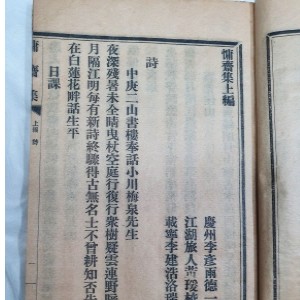 慵齋集上編
慶州李彥雨德一
江湖旅人黃瑗
載寧李建浩洛瑞
詩
申庚二山書樓奉話小川梅泉先生
夜深殘暑未全晴曳杖空庭行復行衆樹疑雲連野
月隔江明每有新詩終驟得古無名士不曾耕知否
在白蓮花畔話生平
日課
慵齋集
上編 詩